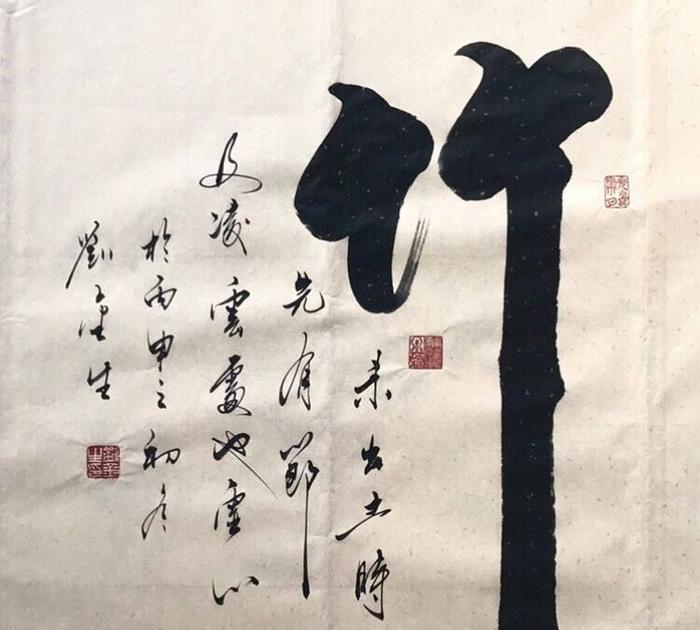 竹
未出土時
先有節
及凌雲處也虛心
於丙申之初冬
劉金生